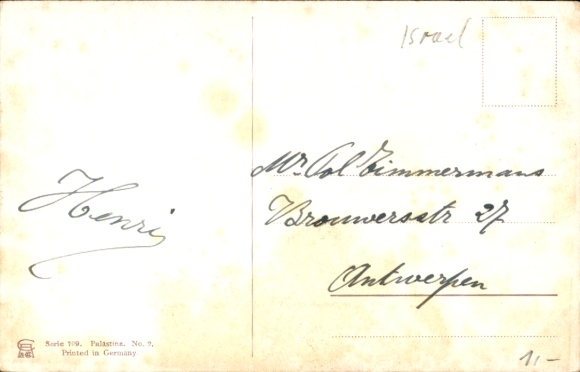 Israel
Mr. Pol Timmermans
Brouwersstr 27
Antwerpen
Henri
Serie 799. Palästina. No. 2.
Printed in Germany
11.-